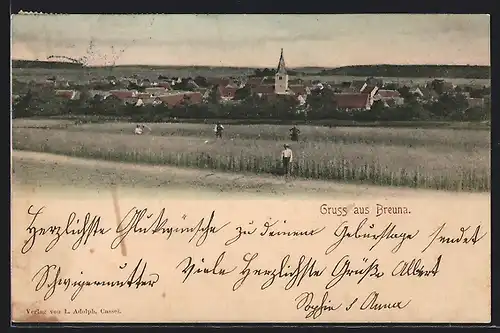 Gruss aus Breuna.
Herzlichste Glückwünsche zu deinem Geburtstage sendet
Schwigermutter Viele Herzlichste Grüße Albert
Sophie & Anna
Verlag von L. Adolph, Cassel.